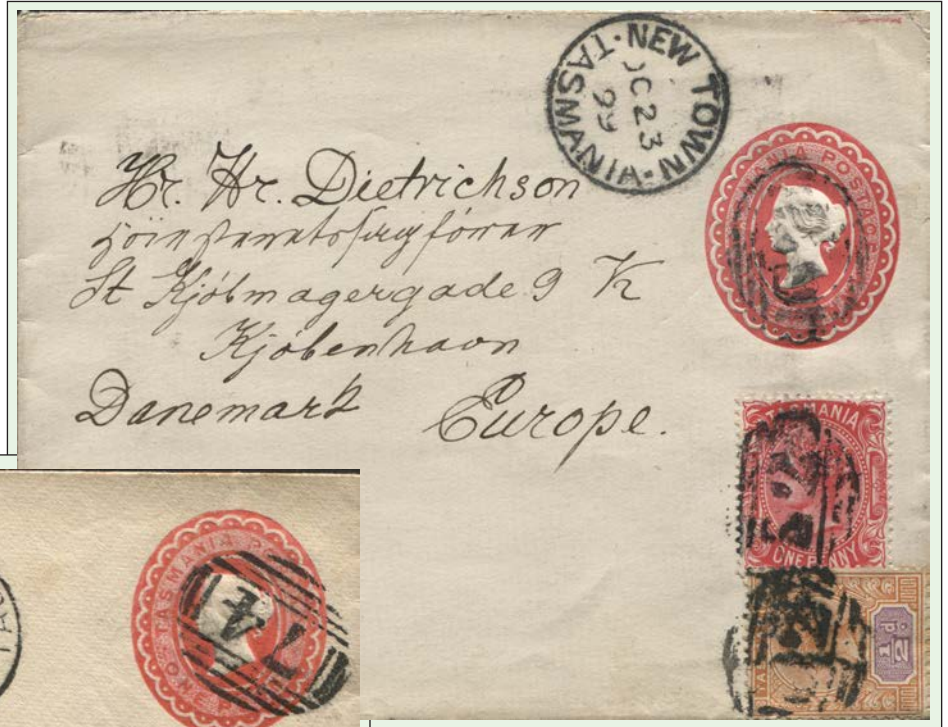 NEW TOWN · TASMANIA ·
OC 23
99
Hr. Hr. Dietrichson
St Kjöbmagergade 9 K
Kjöbenhavn
Danemark Europe.
TASMANIA
ONE PENNY
½d.
TASMANIA
74